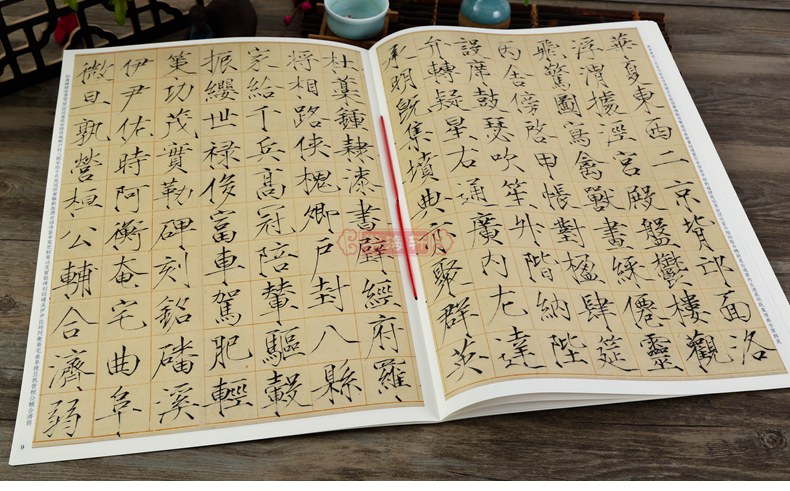 華夏東西二京背邙面洛
浮渭據涇宮殿盤鬱樓觀
飛驚圖寫禽獸畫綵僊靈
丙舍傍啓甲帳對楹肆筵
設席鼓瑟吹笙升階納陛
弁轉疑星右通廣內左達
承明既集墳典亦聚群英
杜藁鍾隸漆書壁經府羅
將相路俠槐卿戶封八縣
家給千兵高冠陪輦驅轂
振纓世祿侈富車駕肥輕
策功茂實勒碑刻銘磻溪
伊尹佐時阿衡奄宅曲阜
微旦孰營桓公輔合濟弱
9